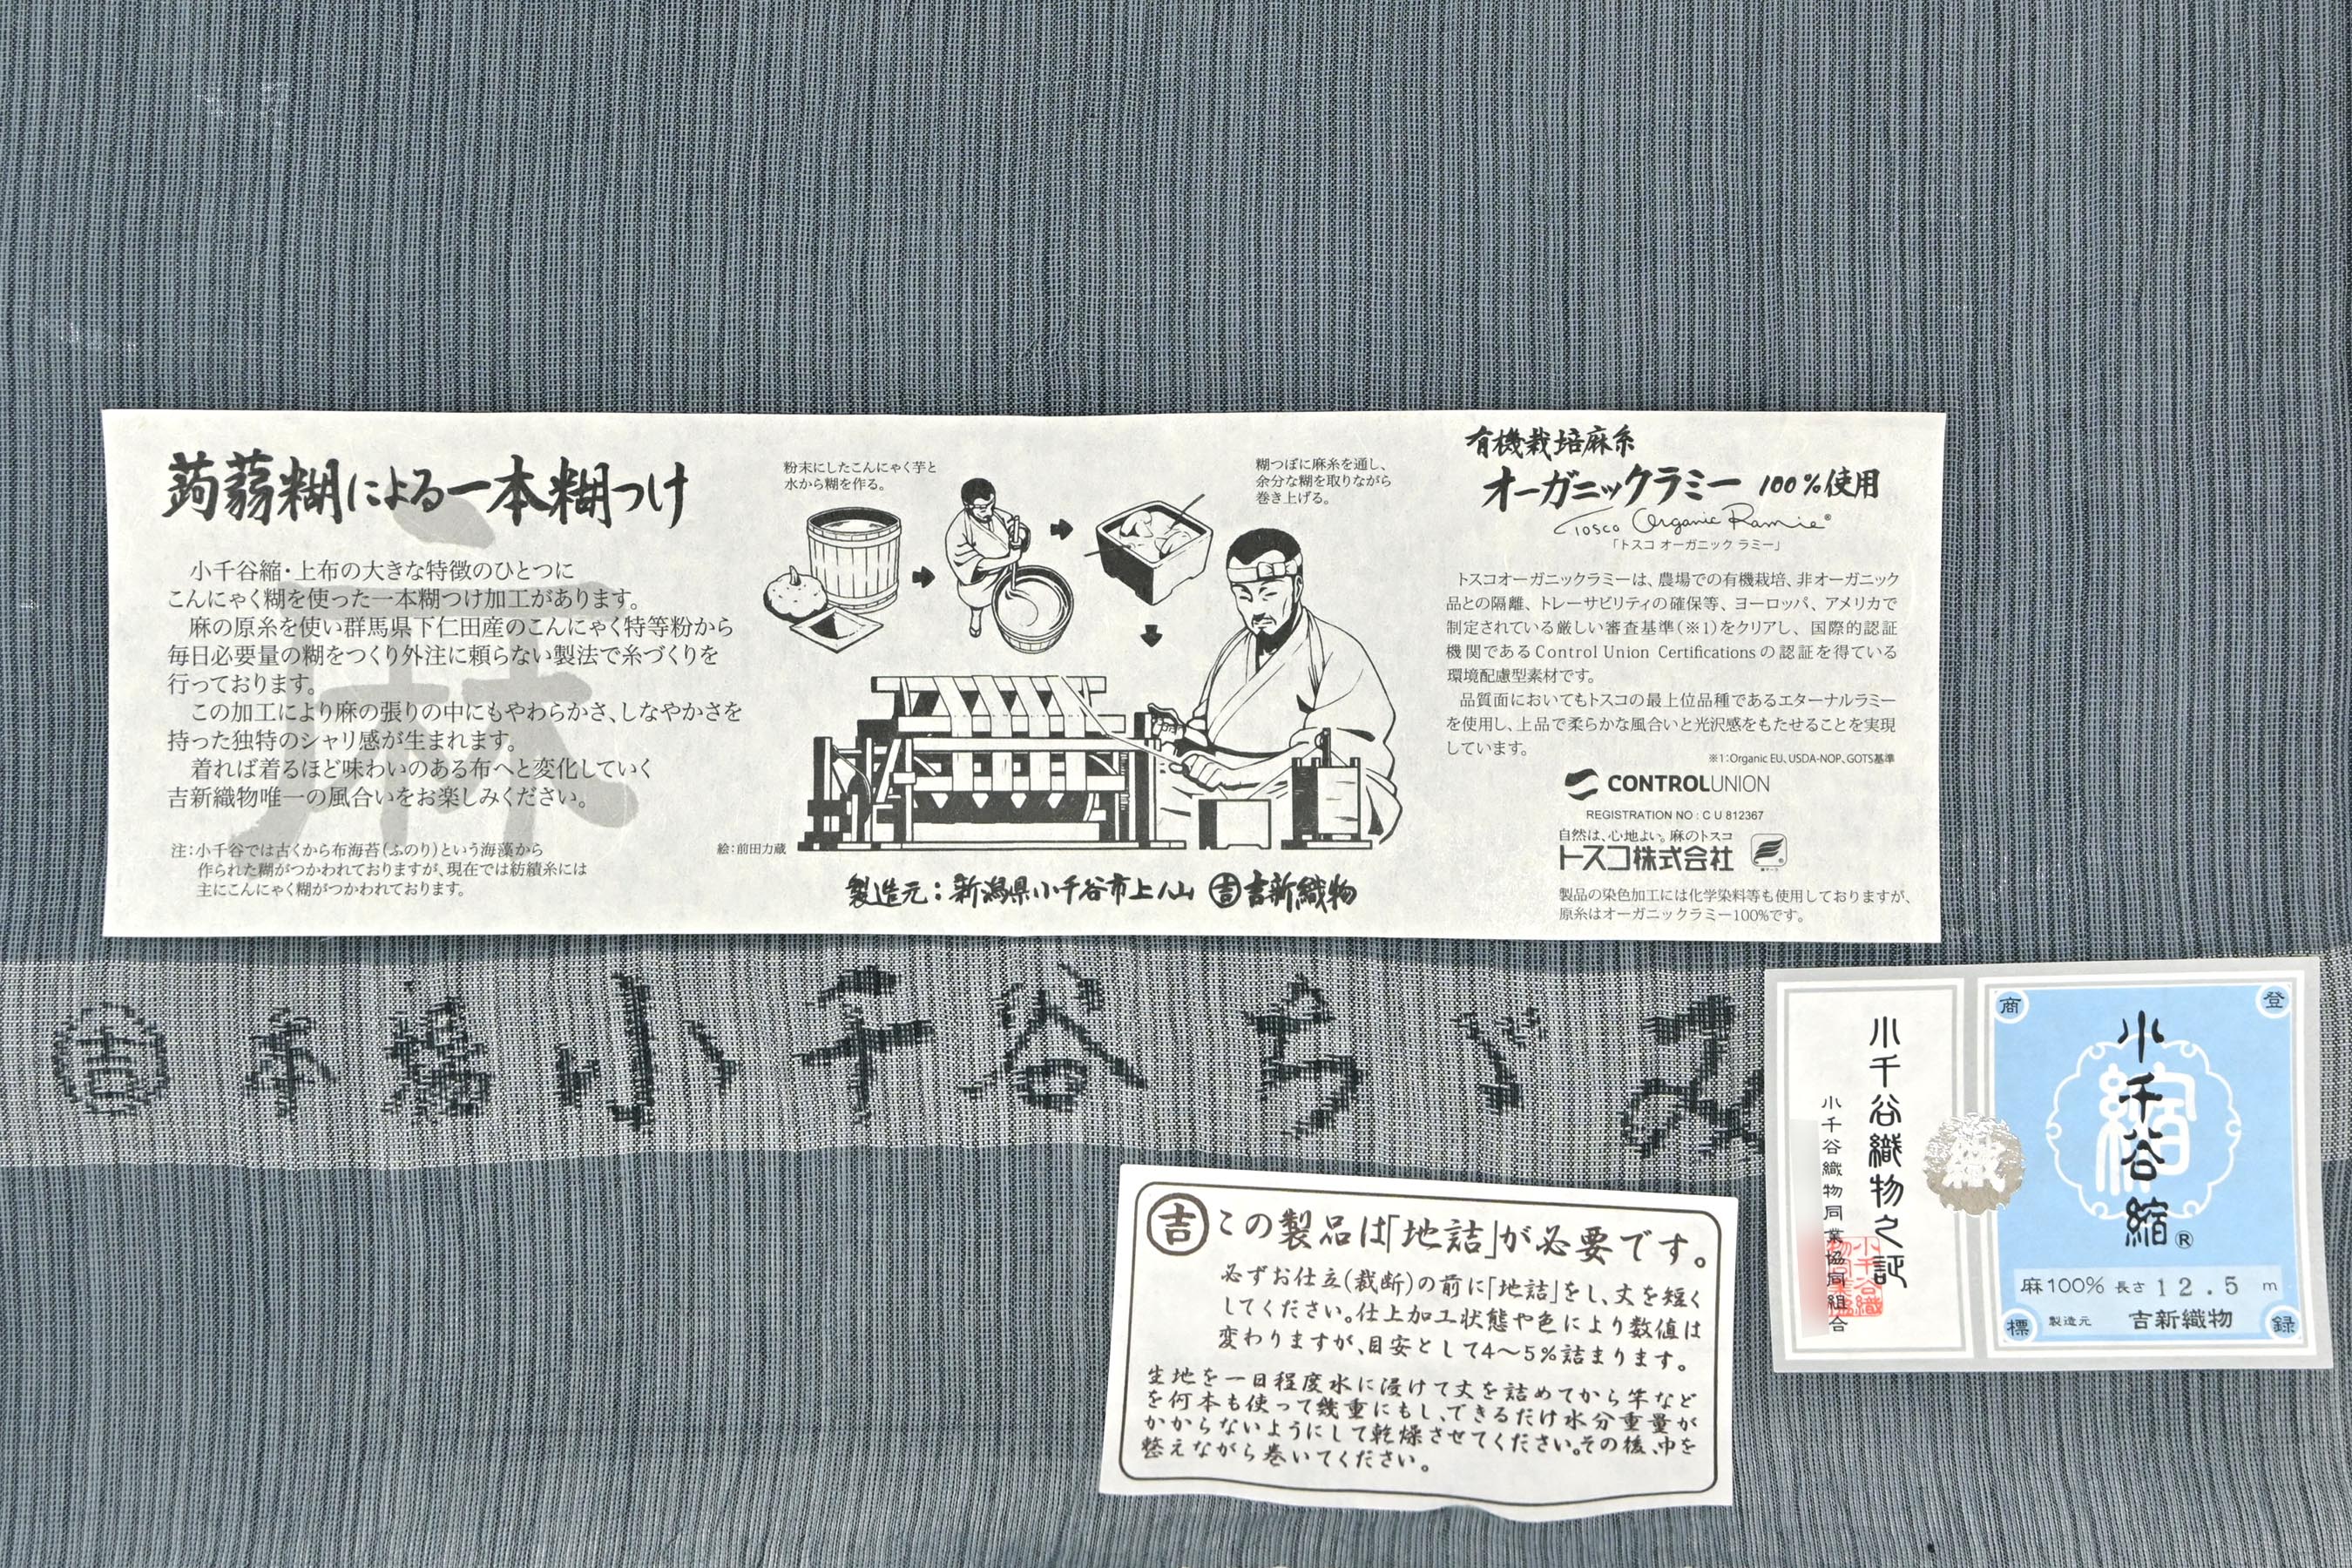 蒟蒻糊による一本糊つけ
小千谷縮・上布の大きな特徴のひとつに
こんにゃく糊を使った一本糊つけ加工があります。
麻の原糸を使い群馬県下仁田産のこんにゃく特等粉から
毎日必要量の糊をつくり外注に頼らない製法で糸づくりを
行っております。
この加工により麻の張りの中にもやわらかさ、しなやかさを
持った独特のシャリ感が生まれます。
着れば着るほど味わいのある布へと変化していく
吉新織物唯一の風合いをお楽しみください。
麻
注:小千谷では古くから布海苔(ふのり)という海藻から
作られた糊がつかわれておりますが、現在では紡績糸には
主にこんにゃく糊がつかわれております。
粉末にしたこんにゃく芋と
水から糊を作る。
糊つぼに麻糸を通し、
余分な糊を取りながら
巻き上げる。
絵:前田力蔵
製造元:新潟県小千谷市上ノ山 吉 吉新織物
有機栽培麻糸
オーガニックラミー 100%使用
Tosco Organic Ramie®
「トスコ オーガニック ラミー」
トスコオーガニックラミーは、農場での有機栽培、非オーガニック
品との隔離、トレーサビリティの確保等、ヨーロッパ、アメリカで
制定されている厳しい審査基準(※1)をクリアし、国際的認証
機関であるControl Union Certificationsの認証を得ている
環境配慮型素材です。
品質面においてもトスコの最上位品種であるエターナルラミー
を使用し、上品で柔らかな風合いと光沢感をもたせることを実現
しています。
※1:Organic EU、USDA-NOP、GOTS基準
CONTROLUNION
REGISTRATION NO : C U 812367
自然は、心地よい。麻のトスコ
トスコ株式会社
製品の染色加工には化学染料等も使用しておりますが、
原糸はオーガニックラミー100%です。
吉 本場小千谷ちゞみ
吉 この製品は「地詰」が必要です。
必ずお仕立(裁断)の前に「地詰」をし、丈を短く
してください。仕上加工状態や色により数値は
変わりますが、目安として4〜5%詰まります。
生地を一日程度水に浸けて丈を詰めてから竿など
を何本も使って幾重にもし、できるだけ水分重量が
かからないようにして乾燥させてください。その後、巾を
整えながら巻いてください。
小千谷織物之証
小千谷織物同業協同組合
織
商
登
縮
小千谷縮®
麻100% 長さ12.5 m
標 製造元 吉新織物 録